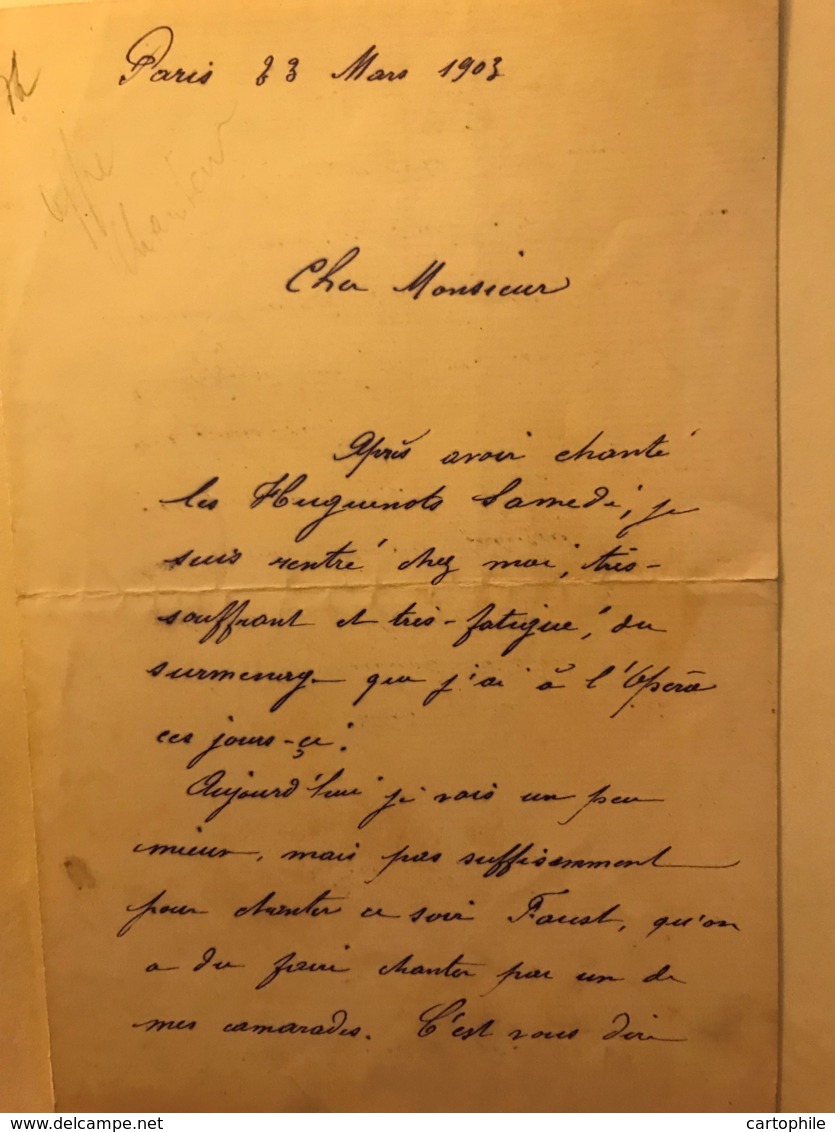 Paris 23 Mars 1903
Chanteur
Cher Monsieur
Après avoir chanté
les Huguenots Samedi, je
suis rentré chez moi, très-
souffrant et très-fatigué, du
surmenage que j'ai à l'Opéra
ces jours-çi.
Aujourd'hui je vais un peu
mieux, mais pas suffisemment
pour chanter ce soir Faust, qu'on
a du faire chanter par un de
mes camarades. C'est vous dire
www.delcampe.net
cartophile